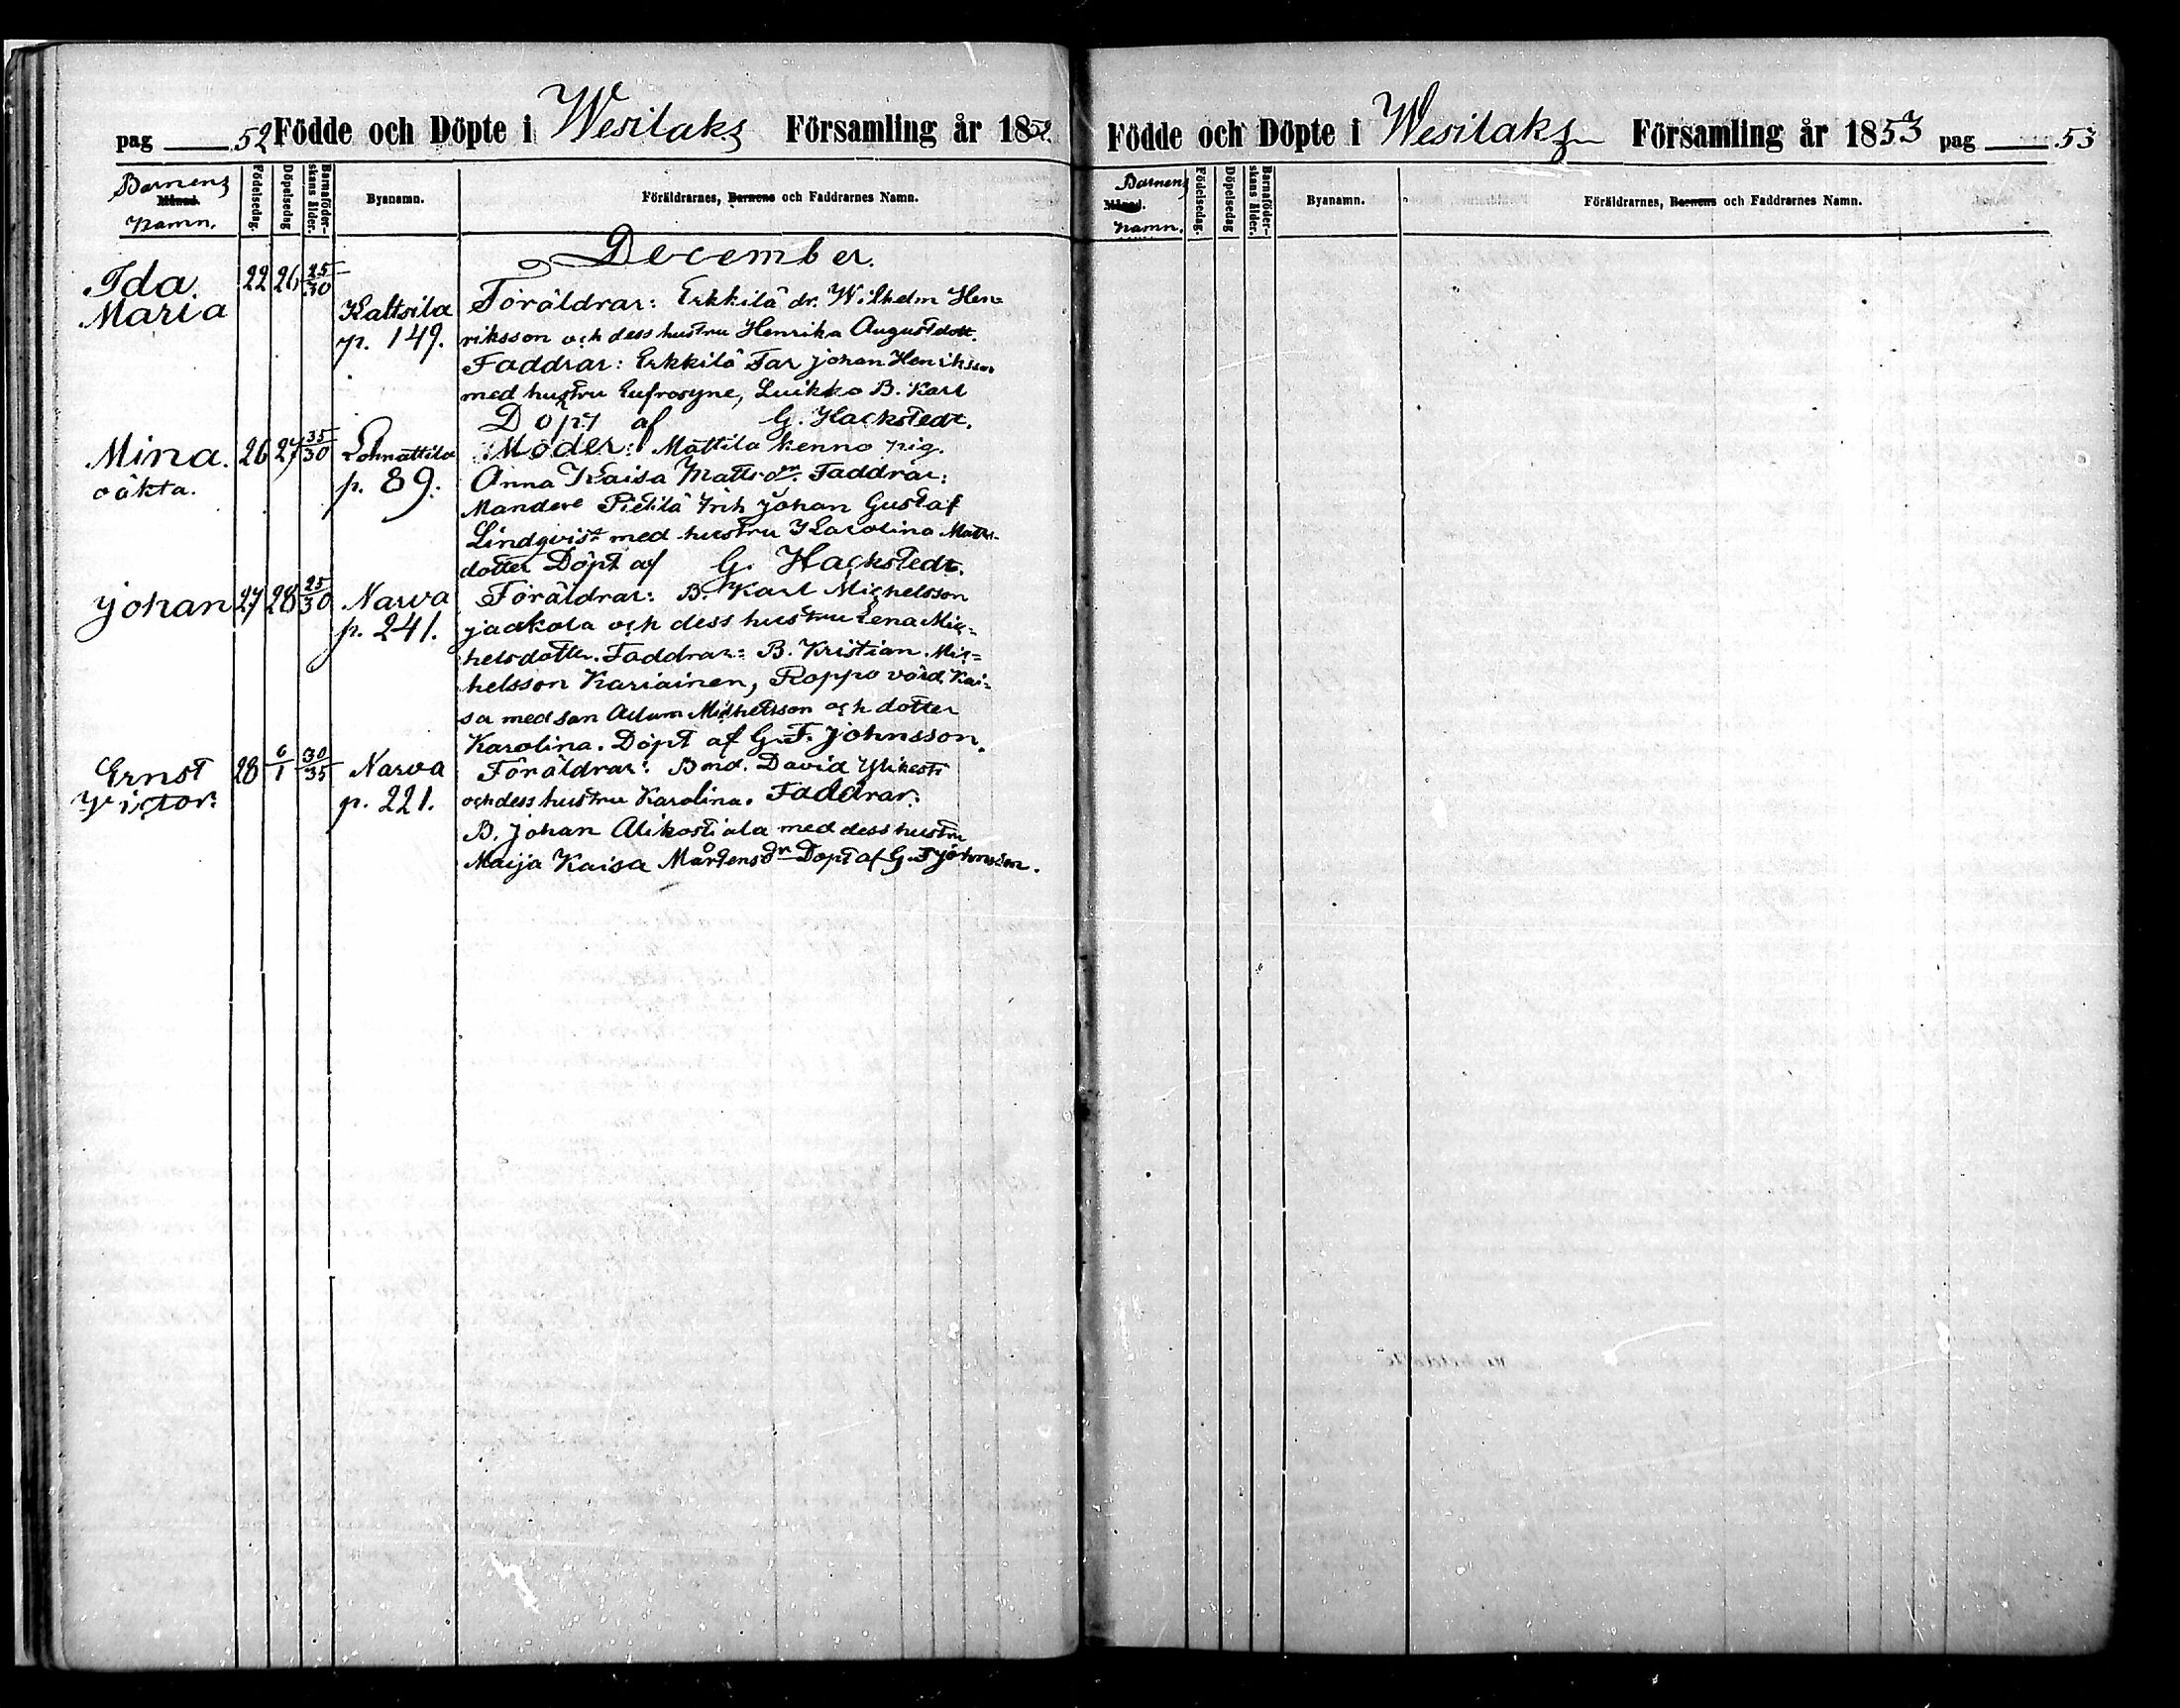 pag 52 Födde och Döpte i Wesilaks Församling år 1852
Barnens
Månad.
Namn.
Födelsedag.
Döpelsedag
Barnaföder-
skans ålder.
Byanamn.
Föräldrarnes, Barnens och Faddrarnes Namn.
December.
Ida 22 26 25/30
Maria
Kaltsila
p. 149.
Föräldrar: Erkkilä dr. Wilhelm Hen=
riksson och dess hustru Henrika Augustdott.
Faddrar: Erkkilä Far Johan Henriksson
med hustru Eufrosyne, Luikko B. Karl
Döpt af G. Hackstedt.
Mina. 26 27 35/30 Lohnattila
oäkta. p. 89.
Moder: Mattila Kenno pig.
Anna Kaisa Mattsdr. Faddrar:
Mandere Pietilä Johan Gustaf
Lindqvist med hustru Karolina Matts-
dotter Döpt af G. Hackstedt.
Johan 27 28 25/30 Narva
p. 241.
Föräldrar: B. Karl Michelsson
Jaakola och dess hustru Lena Mic=
helsdotter. Faddrar: B. Kristian Mic=
helsson Kariainen, Roppo värd. Kai=
sa med son Adam Michelsson och dotter
Karolina. Döpt af G. F. Johnsson.
Ernst 28 6/1 30/35 Narva
Victor. p. 221.
Föräldrar: Bond. David Ylikosti
och dess hustru Karolina. Faddrar:
B. Johan Alikostiala med dess hustru
Maija Kaisa Mårtensdr Döpt af G. F Johnsson.
Födde och Döpte i Wesilaks Församling år 1853 pag 53
Barnens
Månad.
Namn.
Födelsedag.
Döpelsedag
Barnaföder-
skans ålder.
Byanamn.
Föräldrarnes, Barnens och Faddrarnes Namn.